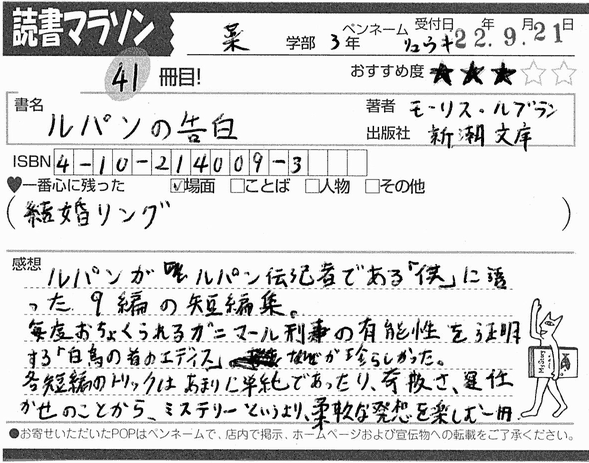 読書マラソン
薬 学部 3年 ペンネーム リュウキ 受付日 22年 9月 21日
41 冊目! おすすめ度 ★★★☆☆
書名 ルパンの告白
著者 モーリス・ルブラン
出版社 新潮文庫
ISBN 4-10-214009-3
♥一番心に残った ☑場面 □ことば □人物 □その他
(結婚リング)
感想 ルパンが ルパン伝記者である「僕」に語
った9編の短編集。
毎度おちょくられるガニマール刑事の有能性を証明
する「白鳥の首のエディス」 が珍らしかった。
各短編のトリックはあまりに単純であったり、奇抜さ、運任
かせのことから、ミステリーというより、柔軟な発想を楽しむ一冊
Mystery
●お寄せいただいたPOPはペンネームで、店内で掲示、ホームページおよび宣伝物への転載をご了承ください。